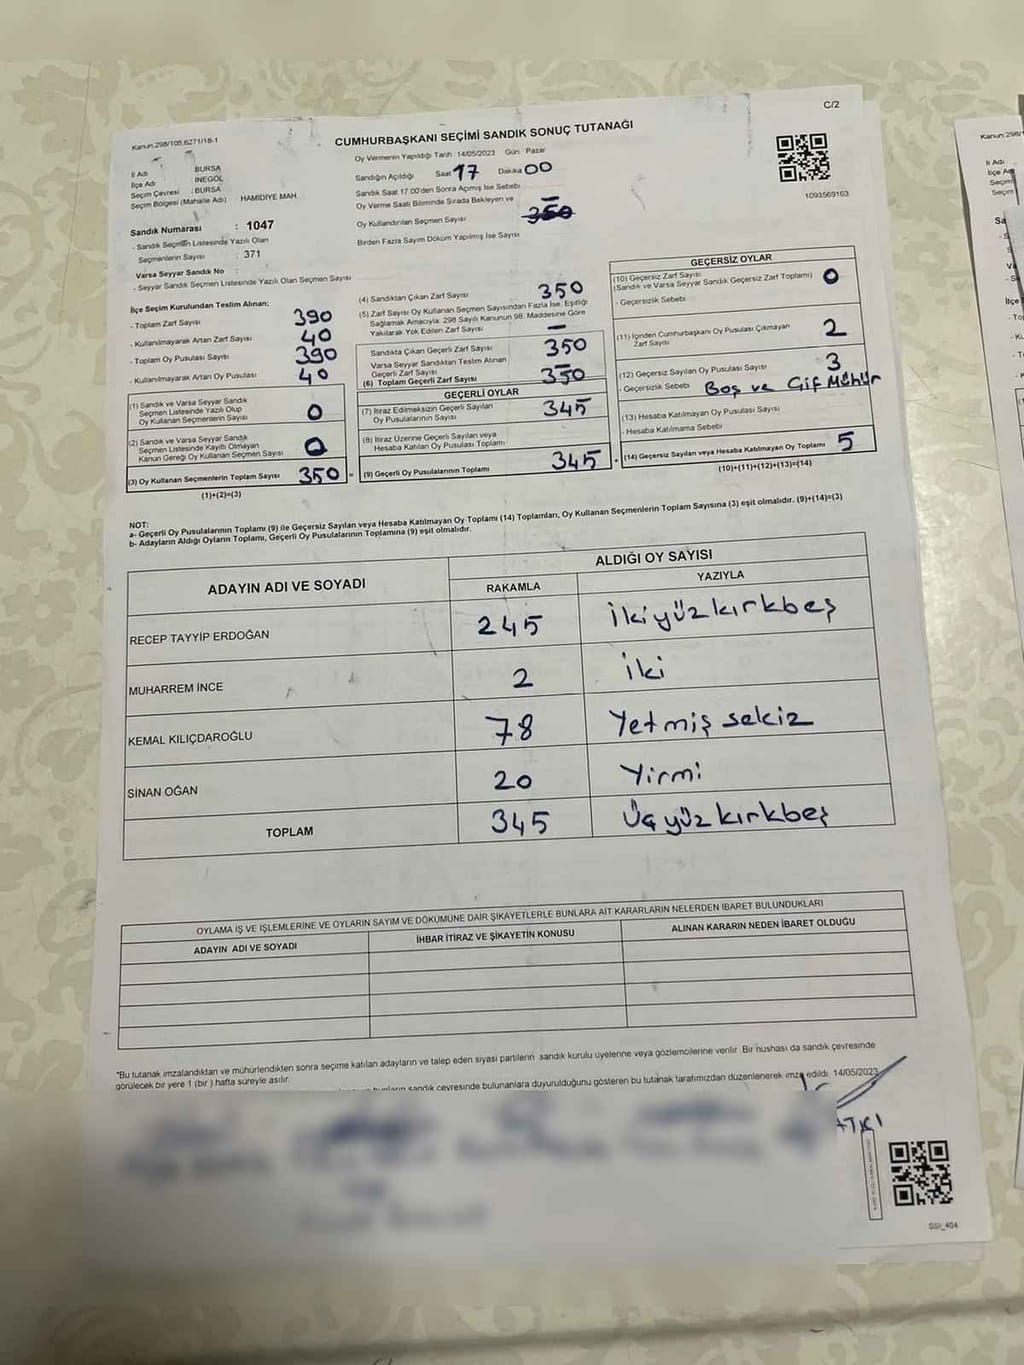 C/2
Kanun:298/105.6271/18-1
CUMHURBAŞKANI SEÇİMİ SANDIK SONUÇ TUTANAĞI
İl Adı BURSA
İlçe Adı İNEGÖL
Seçim Çevresi : BURSA
Seçim Bölgesi (Mahalle Adı) HAMİDİYE MAH.
Sandık Numarası : 1047
- Sandık Seçmen Listesinde Yazılı Olan
Seçmenlerin Sayısı : 371
Varsa Seyyar Sandık No :
- Seyyar Sandık Seçmen Listesinde Yazılı Olan Seçmen Sayısı
Oy Vermenin Yapıldığı Tarih :14/05/2023 Gün : Pazar
Sandığın Açıldığı Saat 17 Dakika 00
Sandık Saat 17.00'den Sonra Açımış İse Sebebi
Oy Verme Saati Bitiminde Sırada Bekleyen ve
Oy Kullandırılan Seçmen Sayısı 350
Birden Fazla Sayım Döküm Yapılmış İse Sayısı
1093569163
İlçe Seçim Kurulundan Teslim Alınan;
- Toplam Zarf Sayısı 390
- Kullanılmayarak Artan Zarf Sayısı 40
- Toplam Oy Pusulası Sayısı 390
- Kullanılmayarak Artan Oy Pusulası 40
(1) Sandık ve Varsa Seyyar Sandık
Seçmen Listesinde Yazılı Olup
Oy Kullanan Seçmenlerin Sayısı 0
(2) Sandık ve Varsa Seyyar Sandık
Seçmen Listesinde Kayıtlı Olmayan
Kanun Gereği Oy Kullanan Seçmen Sayısı 0
(3) Oy Kullanan Seçmenlerin Toplam Sayısı 350 =
(1)+(2)=(3)
(4) Sandıktan Çıkan Zarf Sayısı 350
(5) Zarf Sayısı Oy Kullanan Seçmen Sayısından Fazla İse, Eşitliği
Sağlamak Amacıyla; 298 Sayılı Kanunun 98. Maddesine Göre
Yakılarak Yok Edilen Zarf Sayısı —
Sandıkta Çıkan Geçerli Zarf Sayısı 350
Varsa Seyyar Sandıktan Teslim Alınan
Geçerli Zarf Sayısı —
(6) Toplam Geçerli Zarf Sayısı 350
GEÇERLİ OYLAR
(7) İtiraz Edilmeksizin Geçerli Sayılan
Oy Pusulalarının Sayısı 345
(8) İtiraz Üzerine Geçerli Sayılan veya
Hesaba Katılan Oy Pusulası Toplamı
(9) Geçerli Oy Pusulalarının Toplamı 345 +
GEÇERSİZ OYLAR
(10) Geçersiz Zarf Sayısı
(Sandık ve Varsa Seyyar Sandık Geçersiz Zarf Toplamı) 0
- Geçersizlik Sebebi
(11) İçinden Cumhurbaşkanı Oy Pusulası Çıkmayan
Zarf Sayısı 2
(12) Geçersiz Sayılan Oy Pusulası Sayısı 3
- Geçersizlik Sebebi Boş ve Çif Mühür
(13) Hesaba Katılmayan Oy Pusulası Sayısı
- Hesaba Katılmama Sebebi
(14) Geçersiz Sayılan veya Hesaba Katılmayan Oy Toplamı 5
(10)+(11)+(12)+(13)=(14)
NOT:
a- Geçerli Oy Pusulalarının Toplamı (9) ile Geçersiz Sayılan veya Hesaba Katılmayan Oy Toplamı (14) Toplamları, Oy Kullanan Seçmenlerin Toplam Sayısına (3) eşit olmalıdır. (9)+(14)=(3)
b- Adayların Aldığı Oyların Toplamı, Geçerli Oy Pusulalarının Toplamına (9) eşit olmalıdır.
ADAYIN ADI VE SOYADI ALDIĞI OY SAYISI
RAKAMLA YAZIYLA
RECEP TAYYİP ERDOĞAN 245 İkiyüzkırkbeş
MUHARREM İNCE 2 İki
KEMAL KILIÇDAROĞLU 78 Yetmiş sekiz
SİNAN OĞAN 20 Yirmi
TOPLAM 345 Üçyüzkırkbeş
OYLAMA İŞ VE İŞLEMLERİNE VE OYLARIN SAYIM VE DÖKÜMÜNE DAİR ŞİKAYETLERLE BUNLARA AİT KARARLARIN NELERDEN İBARET BULUNDUKLARI
ADAYIN ADI VE SOYADI İHBAR İTİRAZ VE ŞİKAYETİN KONUSU ALINAN KARARIN NEDEN İBARET OLDUĞU
*Bu tutanak imzalandıktan ve mühürlendikten sonra seçime katılan adayların ve talep eden siyasi partilerin sandık kurulu üyelerine veya gözlemcilerine verilir. Bir nüshası da sandık çevresinde
görülecek bir yere 1 (bir ) hafta süreyle asılır.
bunların sandık çevresinde bulunanlara duyurulduğunu gösteren bu tutanak tarafımızdan düzenlenerek imza edildi. 14/05/2023
SSI_404